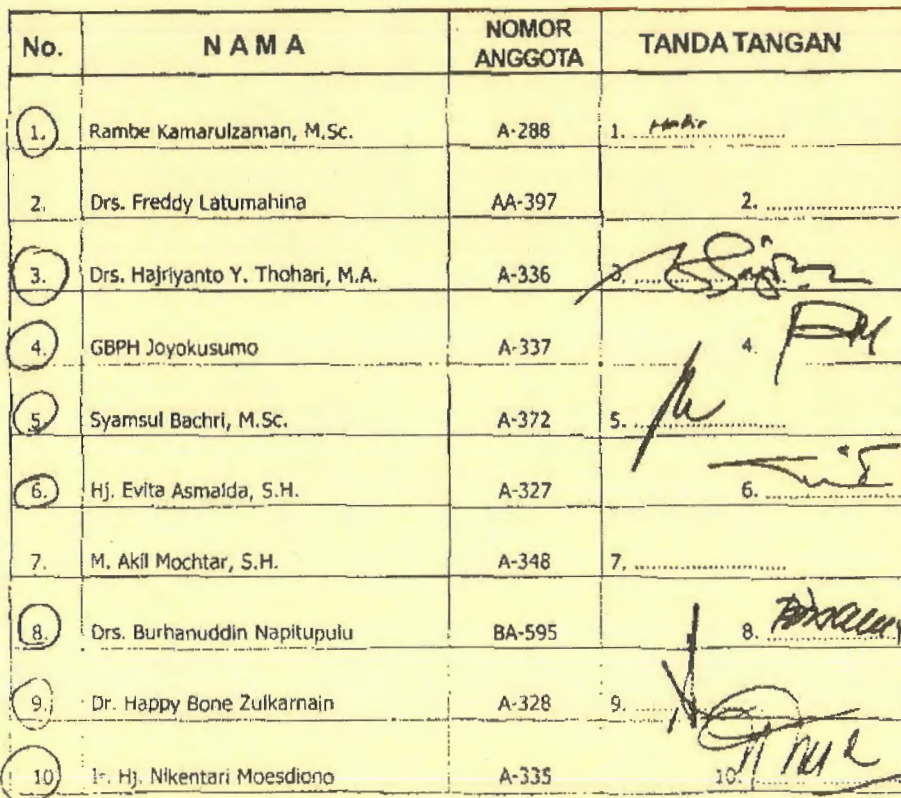 No. N A M A NOMOR ANGGOTA TANDA TANGAN
1. Rambe Kamarulzaman, M.Sc. A-288 1. Hadir
2. Drs. Freddy Latumahina AA-397 2.
3. Drs. Hajriyanto Y. Thohari, M.A. A-336 3.
4. GBPH Joyokusumo A-337 4.
5. Syamsul Bachri, M.Sc. A-372 5.
6. Hj. Evita Asmalda, S.H. A-327 6.
7. M. Akil Mochtar, S.H. A-348 7.
8. Drs. Burhanuddin Napitupulu BA-595 8.
9. Dr. Happy Bone Zulkarnain A-328 9.
10 Ir. Hj. Nikentari Moesdiono A-335 10.